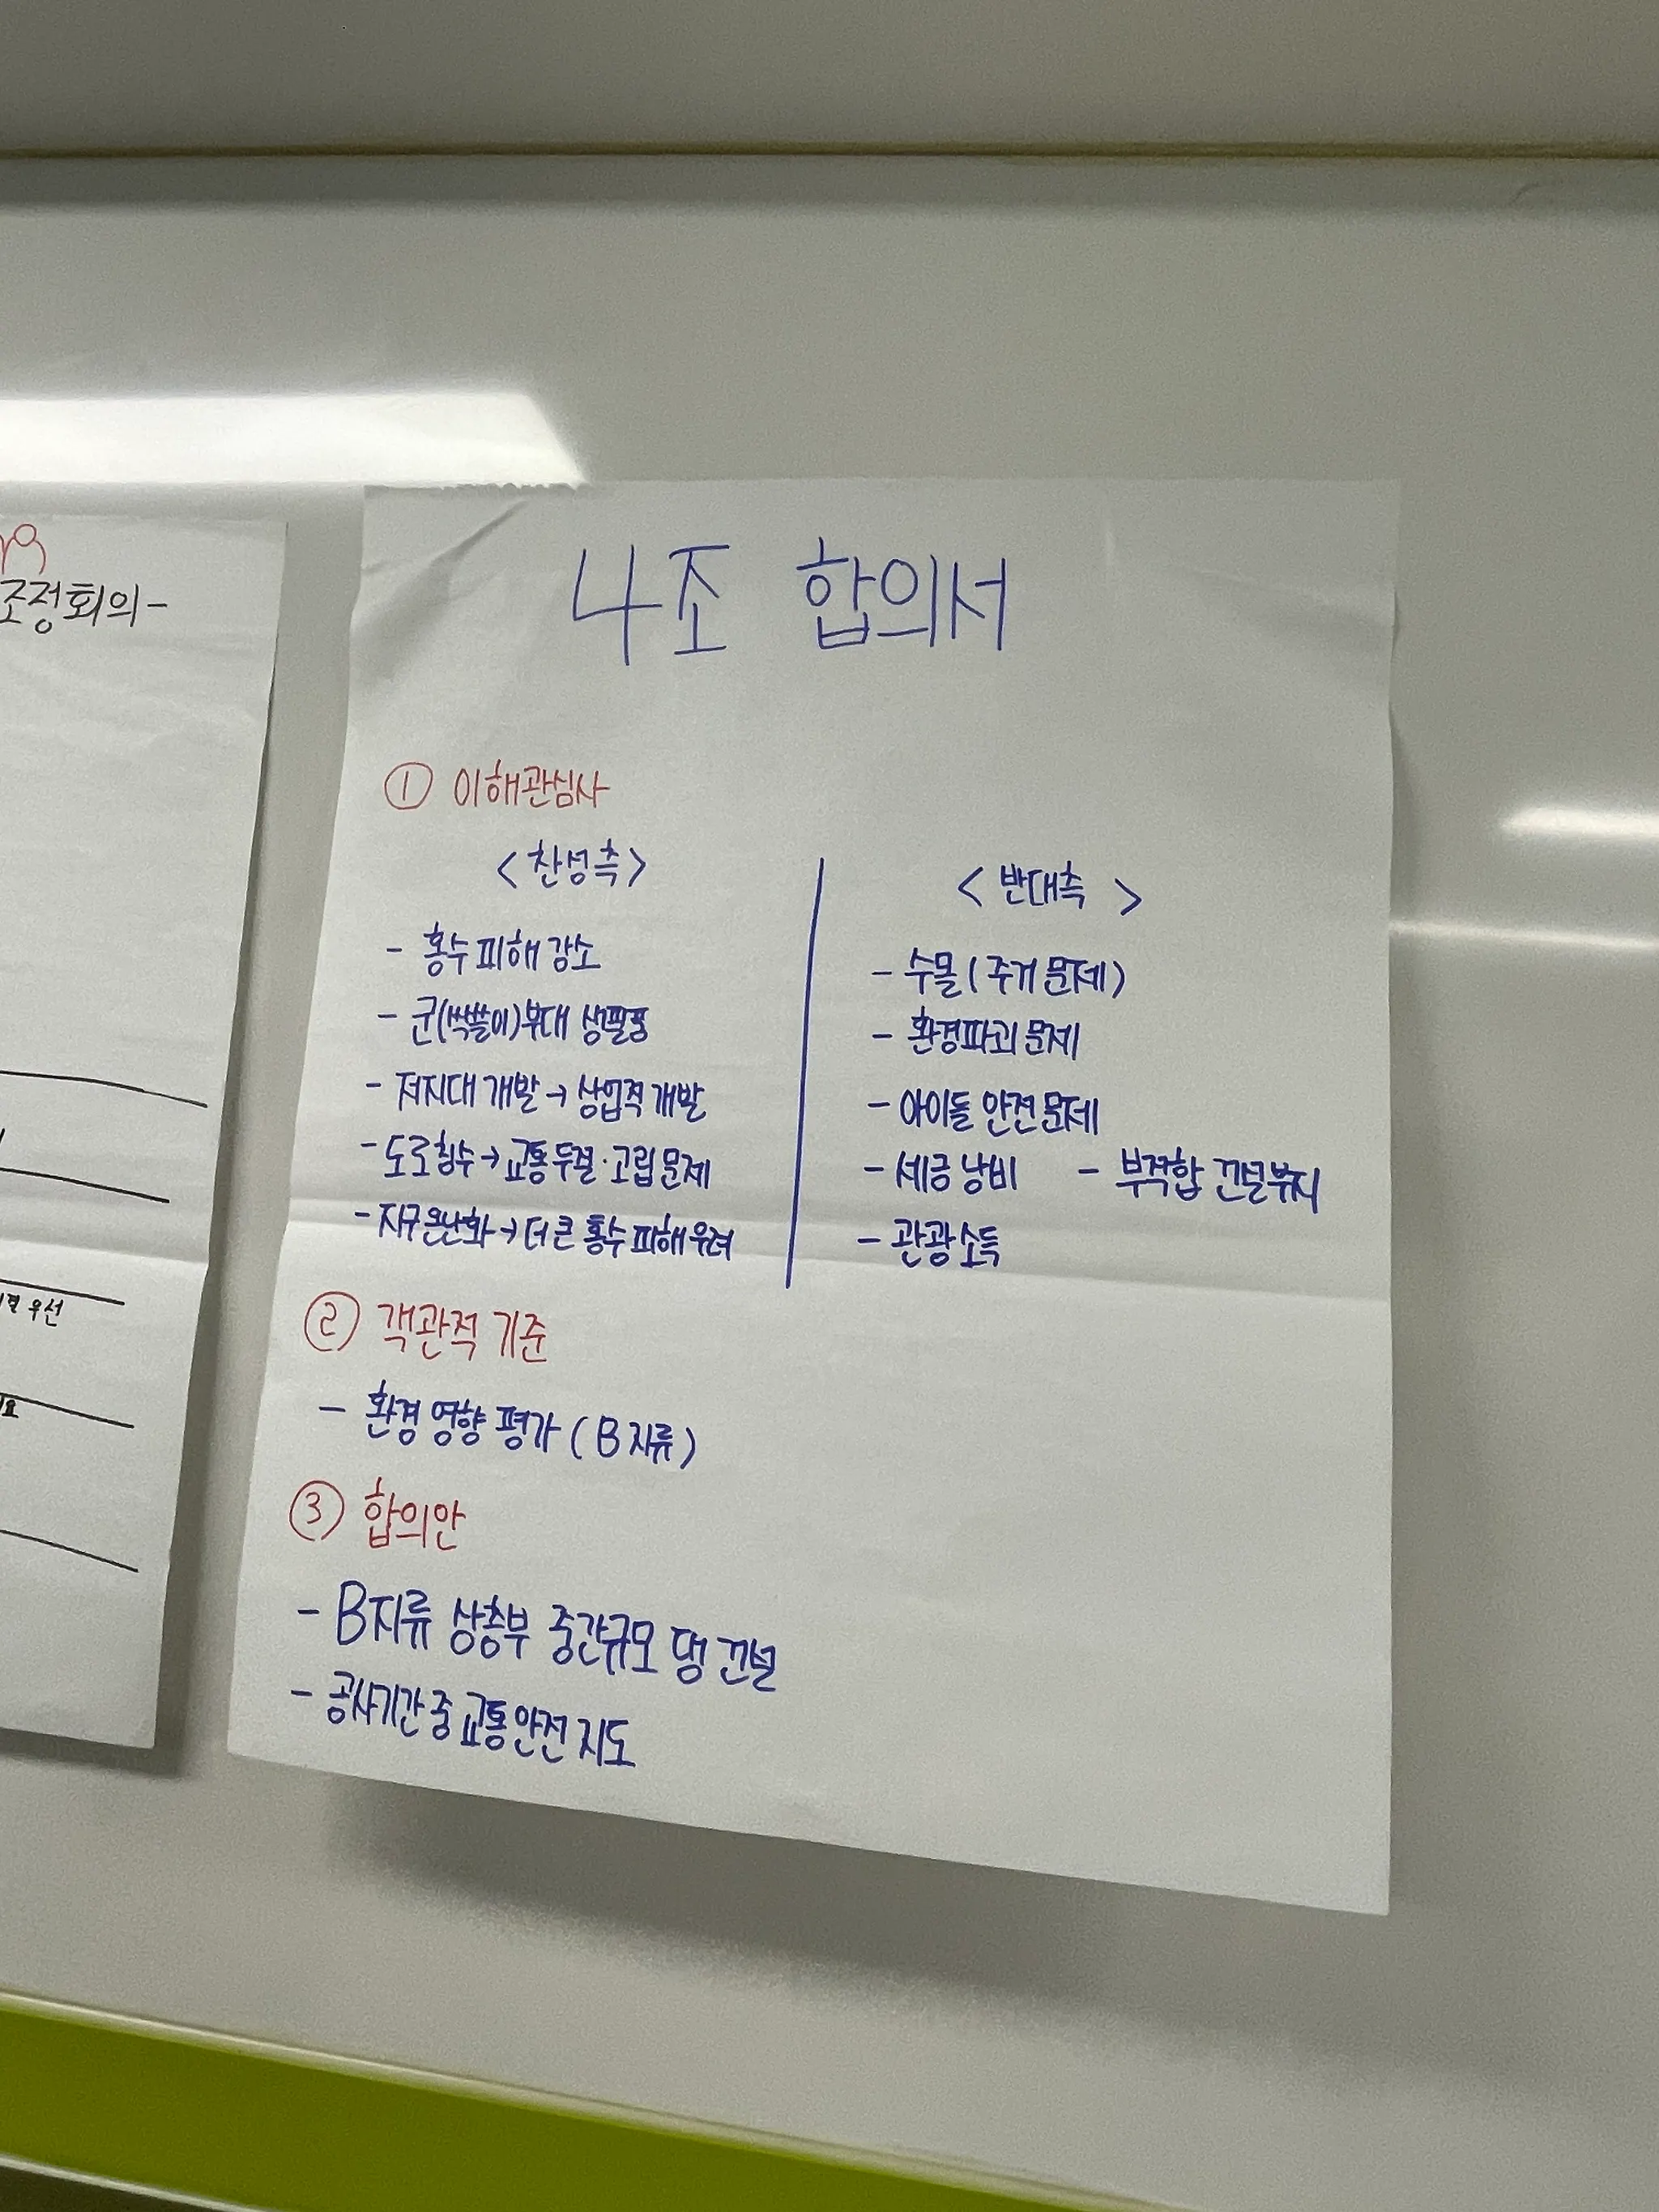 조정회의-
우선
4조 합의서
① 이해관심사
<찬성측>
- 홍수 피해 감소
- 군(싹쓸이)부대 생필품
- 저지대 개발 → 상업적 개발
- 도로침수 → 교통두절·고립 문제
- 지구온난화 → 더 큰 홍수 피해 우려
< 반대측 >
- 수몰 (주거 문제)
- 환경파괴 문제
- 아이들 안전 문제
- 세금 낭비 - 부적합 건설부지
- 관광소득
② 객관적 기준
- 환경 영향 평가 (B지류)
③ 합의안
- B지류 상층부 중간규모 댐 건설
- 공사기간 중 교통안전 지도